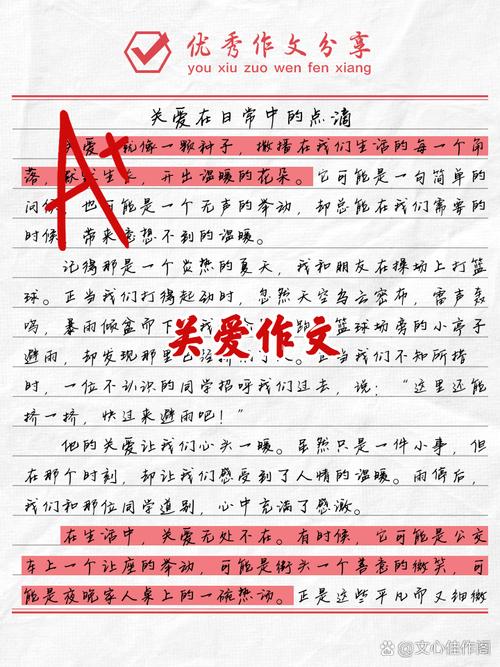 优秀作文分享
you xiu zuo wen fen xiang
关爱在日常中的点滴
关爱,就像一颗种子,撒播在我们生活的每一个角
落,生长,开出温暖的花朵。它可能是一句简单的
问候,也可能是一个无声的举动,却总能在我们需要的
时候,带来意想不到的温暖。
记得那是一个炎热的夏天,我和朋友在操场上打篮
球。正当我们打得起劲时,忽然天空乌云密布,雷声轰
鸣,暴雨倾盆而下。我篮球场旁的小亭子
避雨,却发现那里已经。正当我们不知所措
关爱作文
时,一位不认识的同学招呼我们过去,说:“这里还能
挤一挤,快过来避雨吧!”
他的关爱让我们心头一暖。虽然只是一件小事,但
在那个时刻,却让我们感受到了人情的温暖。雨停后,
我们和那位同学道别,心中充满了感激。
在生活中,关爱无处不在。有时候,它可能是公交
车上一个让座的举动,可能是街头一个善意的微笑,可
能是夜晚家人桌上的一碗热汤。正是这些平凡而又细微
A+
@文心佳作阁